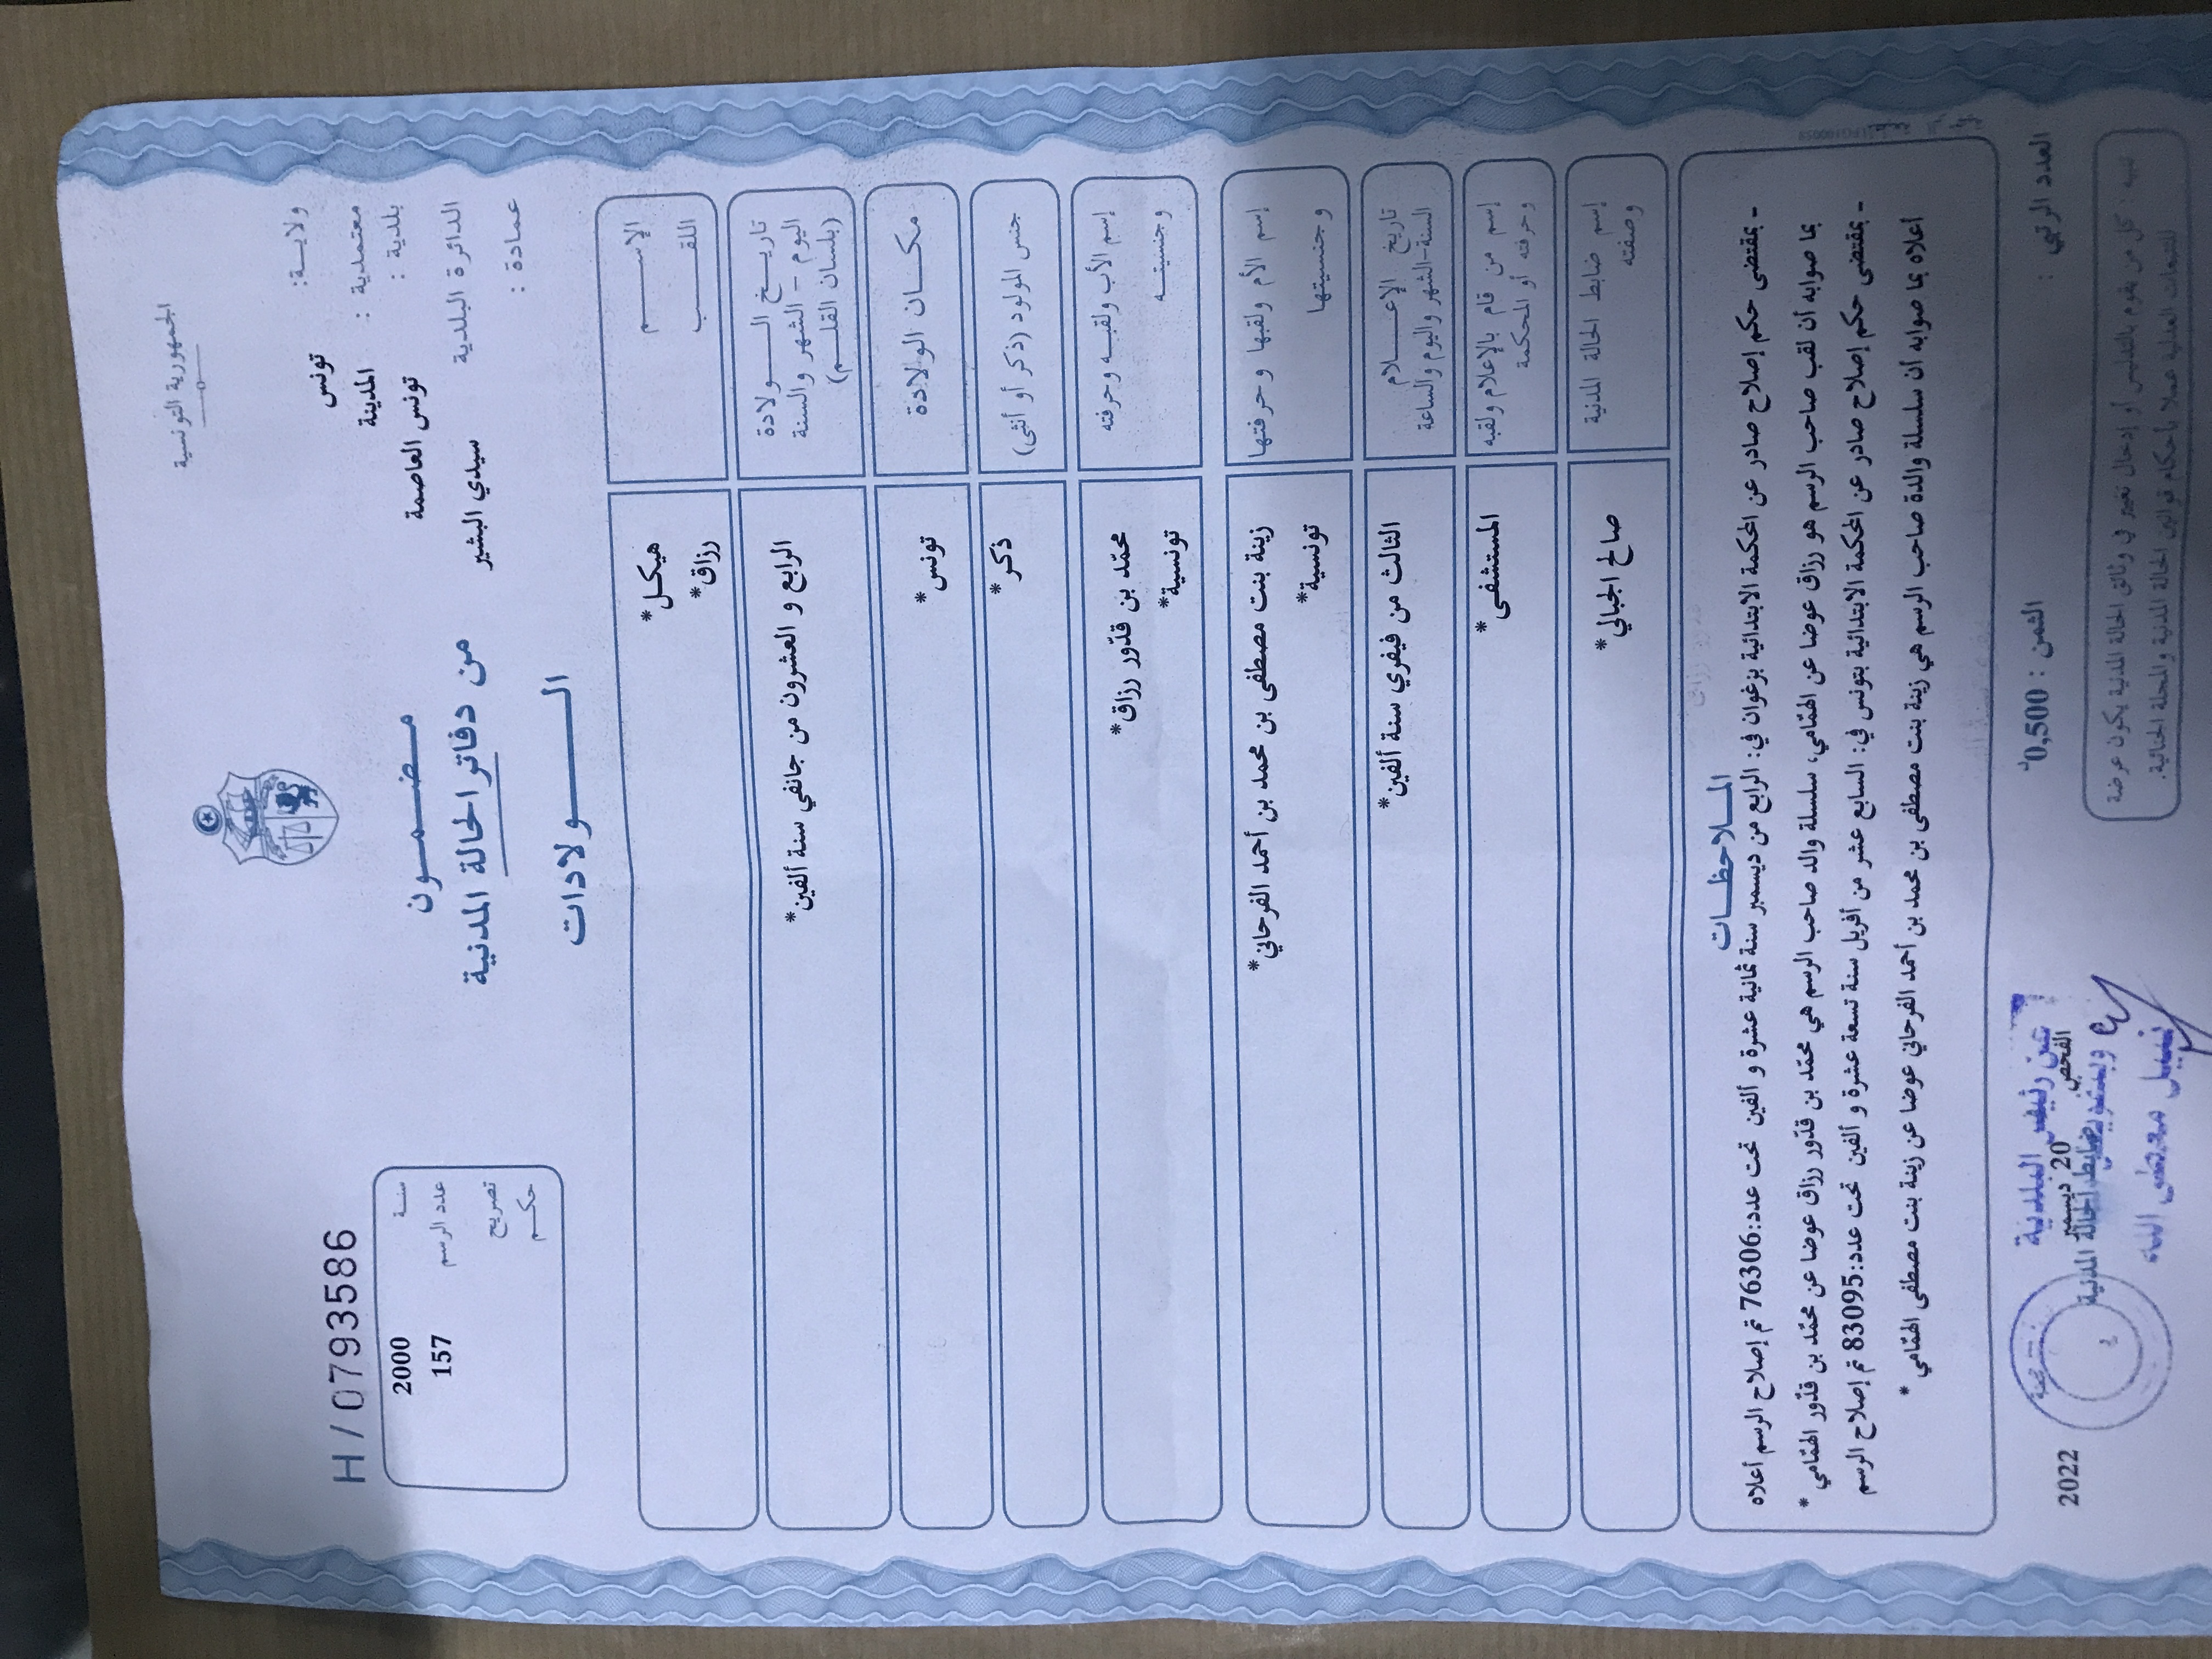 الجمهورية التونسية
ولاية: تونس
معتمدية : المدينة
بلدية : تونس العاصمة
الدائرة البلدية سيدي البشير
عمادة :
H / 0793586
سنة 2000
عدد الرسم 157
تصريح
حكم
مضمون
من دفاتر الحالة المدنية
الولادات
الإسم هيكل*
اللقب رزاق*
تاريخ الولادة
اليوم - الشهر والسنة
(بلسان القلم)
الرابع و العشرون من جانفي سنة ألفين*
مكان الولادة تونس*
جنس المولود (ذكر أو أنثى) ذكر*
إسم الأب ولقبه وحرفته محمّد بن قدّور رزاق*
وجنسيته تونسية*
إسم الأم ولقبها وحرفتها زينة بنت مصطفى بن محمد بن أحمد الفرحاني*
وجنسيتها تونسية*
تاريخ الإعلام
السنة-الشهر واليوم والساعة
الثالث من فيفري سنة ألفين*
إسم من قام بالإعلام ولقبه
وحرفته أو المحكمة
المستشفى*
إسم ضابط الحالة المدنية
وصفته
صالح الجبالي*
الملاحظات
- بمقتضى حكم إصلاح صادر عن المحكمة الابتدائية بزغوان في: الرابع من ديسمبر سنة ثمانية عشرة و ألفين تحت عدد:76306 تم إصلاح الرسم أعلاه
بما صوابه أن لقب صاحب الرسم هو رزاق عوضا عن الهمّامي، سلسلة والد صاحب الرسم هي محمّد بن قدّور رزاق عوضا عن محمّد بن قدّور الهمّامي *
- بمقتضى حكم إصلاح صادر عن المحكمة الابتدائية بتونس في: السابع عشر من أفريل سنة تسعة عشرة و ألفين تحت عدد:83095 تم إصلاح الرسم
أعلاه بما صوابه أن سلسلة والدة صاحب الرسم هي زينة بنت مصطفى بن محمد بن أحمد الفرحاني عوضا عن زينة بنت مصطفى الهمّامي *
العدد الرتبي :
الثمن : 0,500د
الفحصي 20 ديسمبر 2022
عن رئيس البلدية
ضابط الحالة المدنية
تنبيه : كل من يقوم بالتدليس أو إدخال تغيير في وثائق الحالة المدنية يكون عرضة
للتتبعات العدلية عملا بأحكام قوانين الحالة المدنية والمجلة الجنائية.